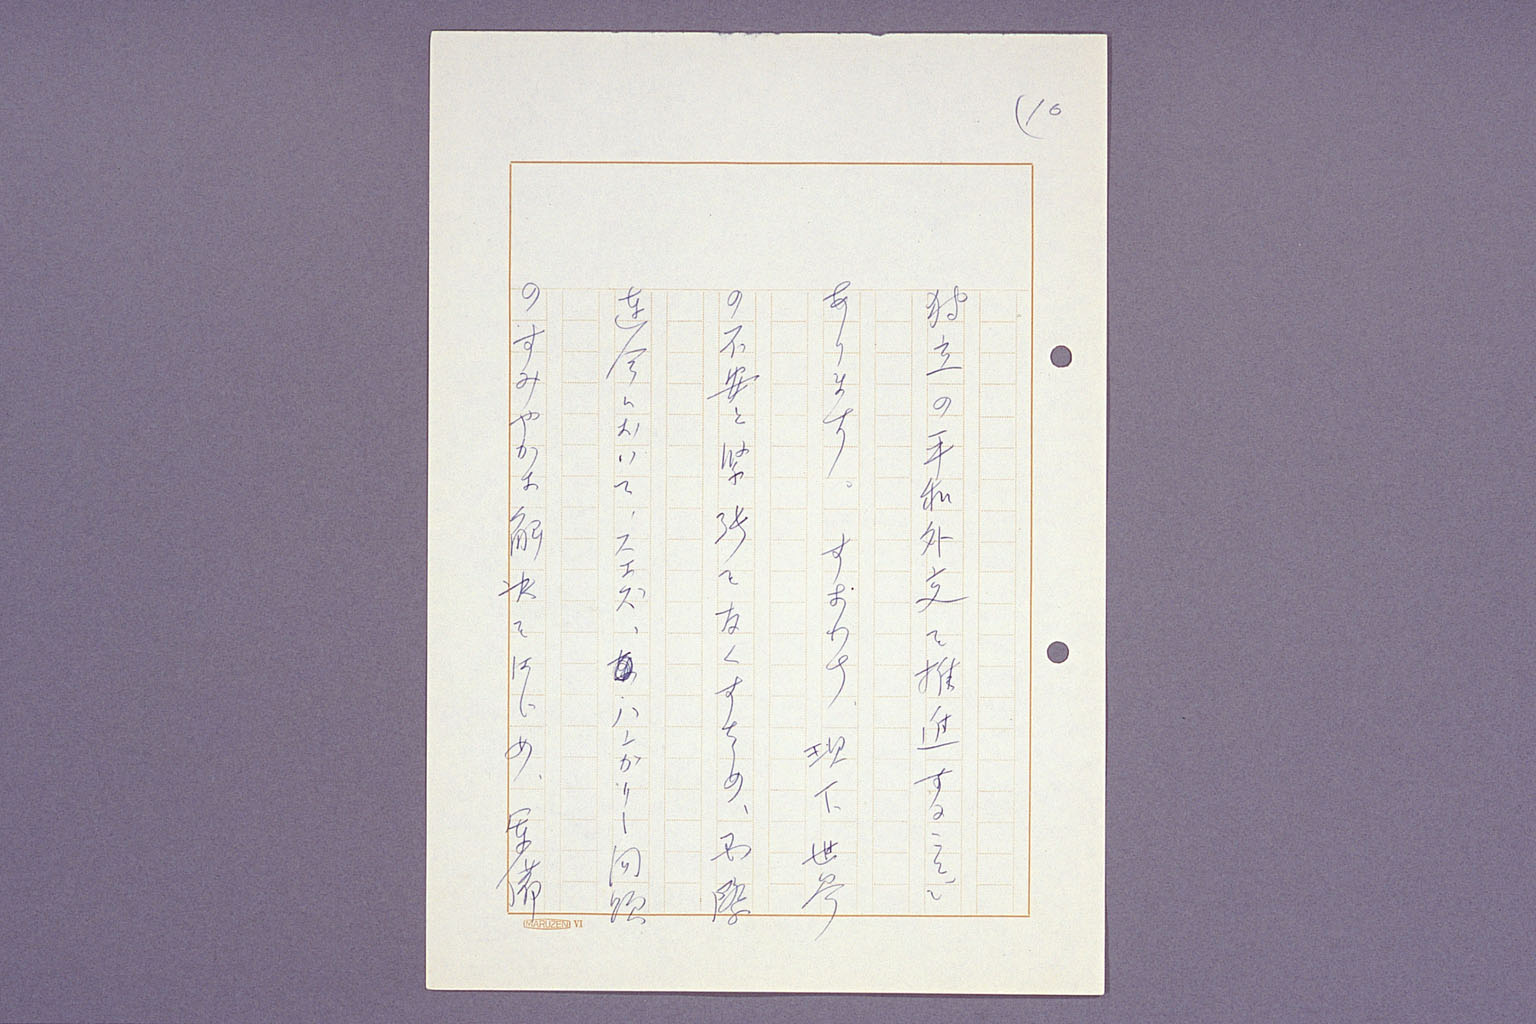 (10
独立の平和外交を推進することで
あります。すなわち、現下世界
の不安と緊張をなくすため、国際
連合において、スエズ、ハンガリー問題
のすみやかな解決をはじめ、軍備
MARUZEN VI